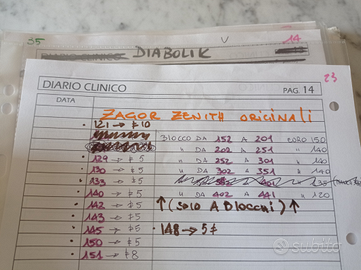 35 V 14
DIABOLIK
23
DIARIO CLINICO PAG. 14
DATA
ZAGOR ZENITH ORIGINALI
• 121 → € 10
BLOCCO DA 152 A 201 EURO 150
" DA 202 A 251 " 140
• 129 → € 5 " DA 252 A 301 " 140
• 130 → € 5 " DA 302 A 351 " 140
• 133 → € 5
• 140 → € 5 " DA 402 A 441 " 120
• 142 → € 5 ↑ (SOLO A BLOCCHI) ↑
• 143 → € 5
• 145 → € 5 • 148 → 5 €
• 150 → € 5
• 151 → € 8
subito